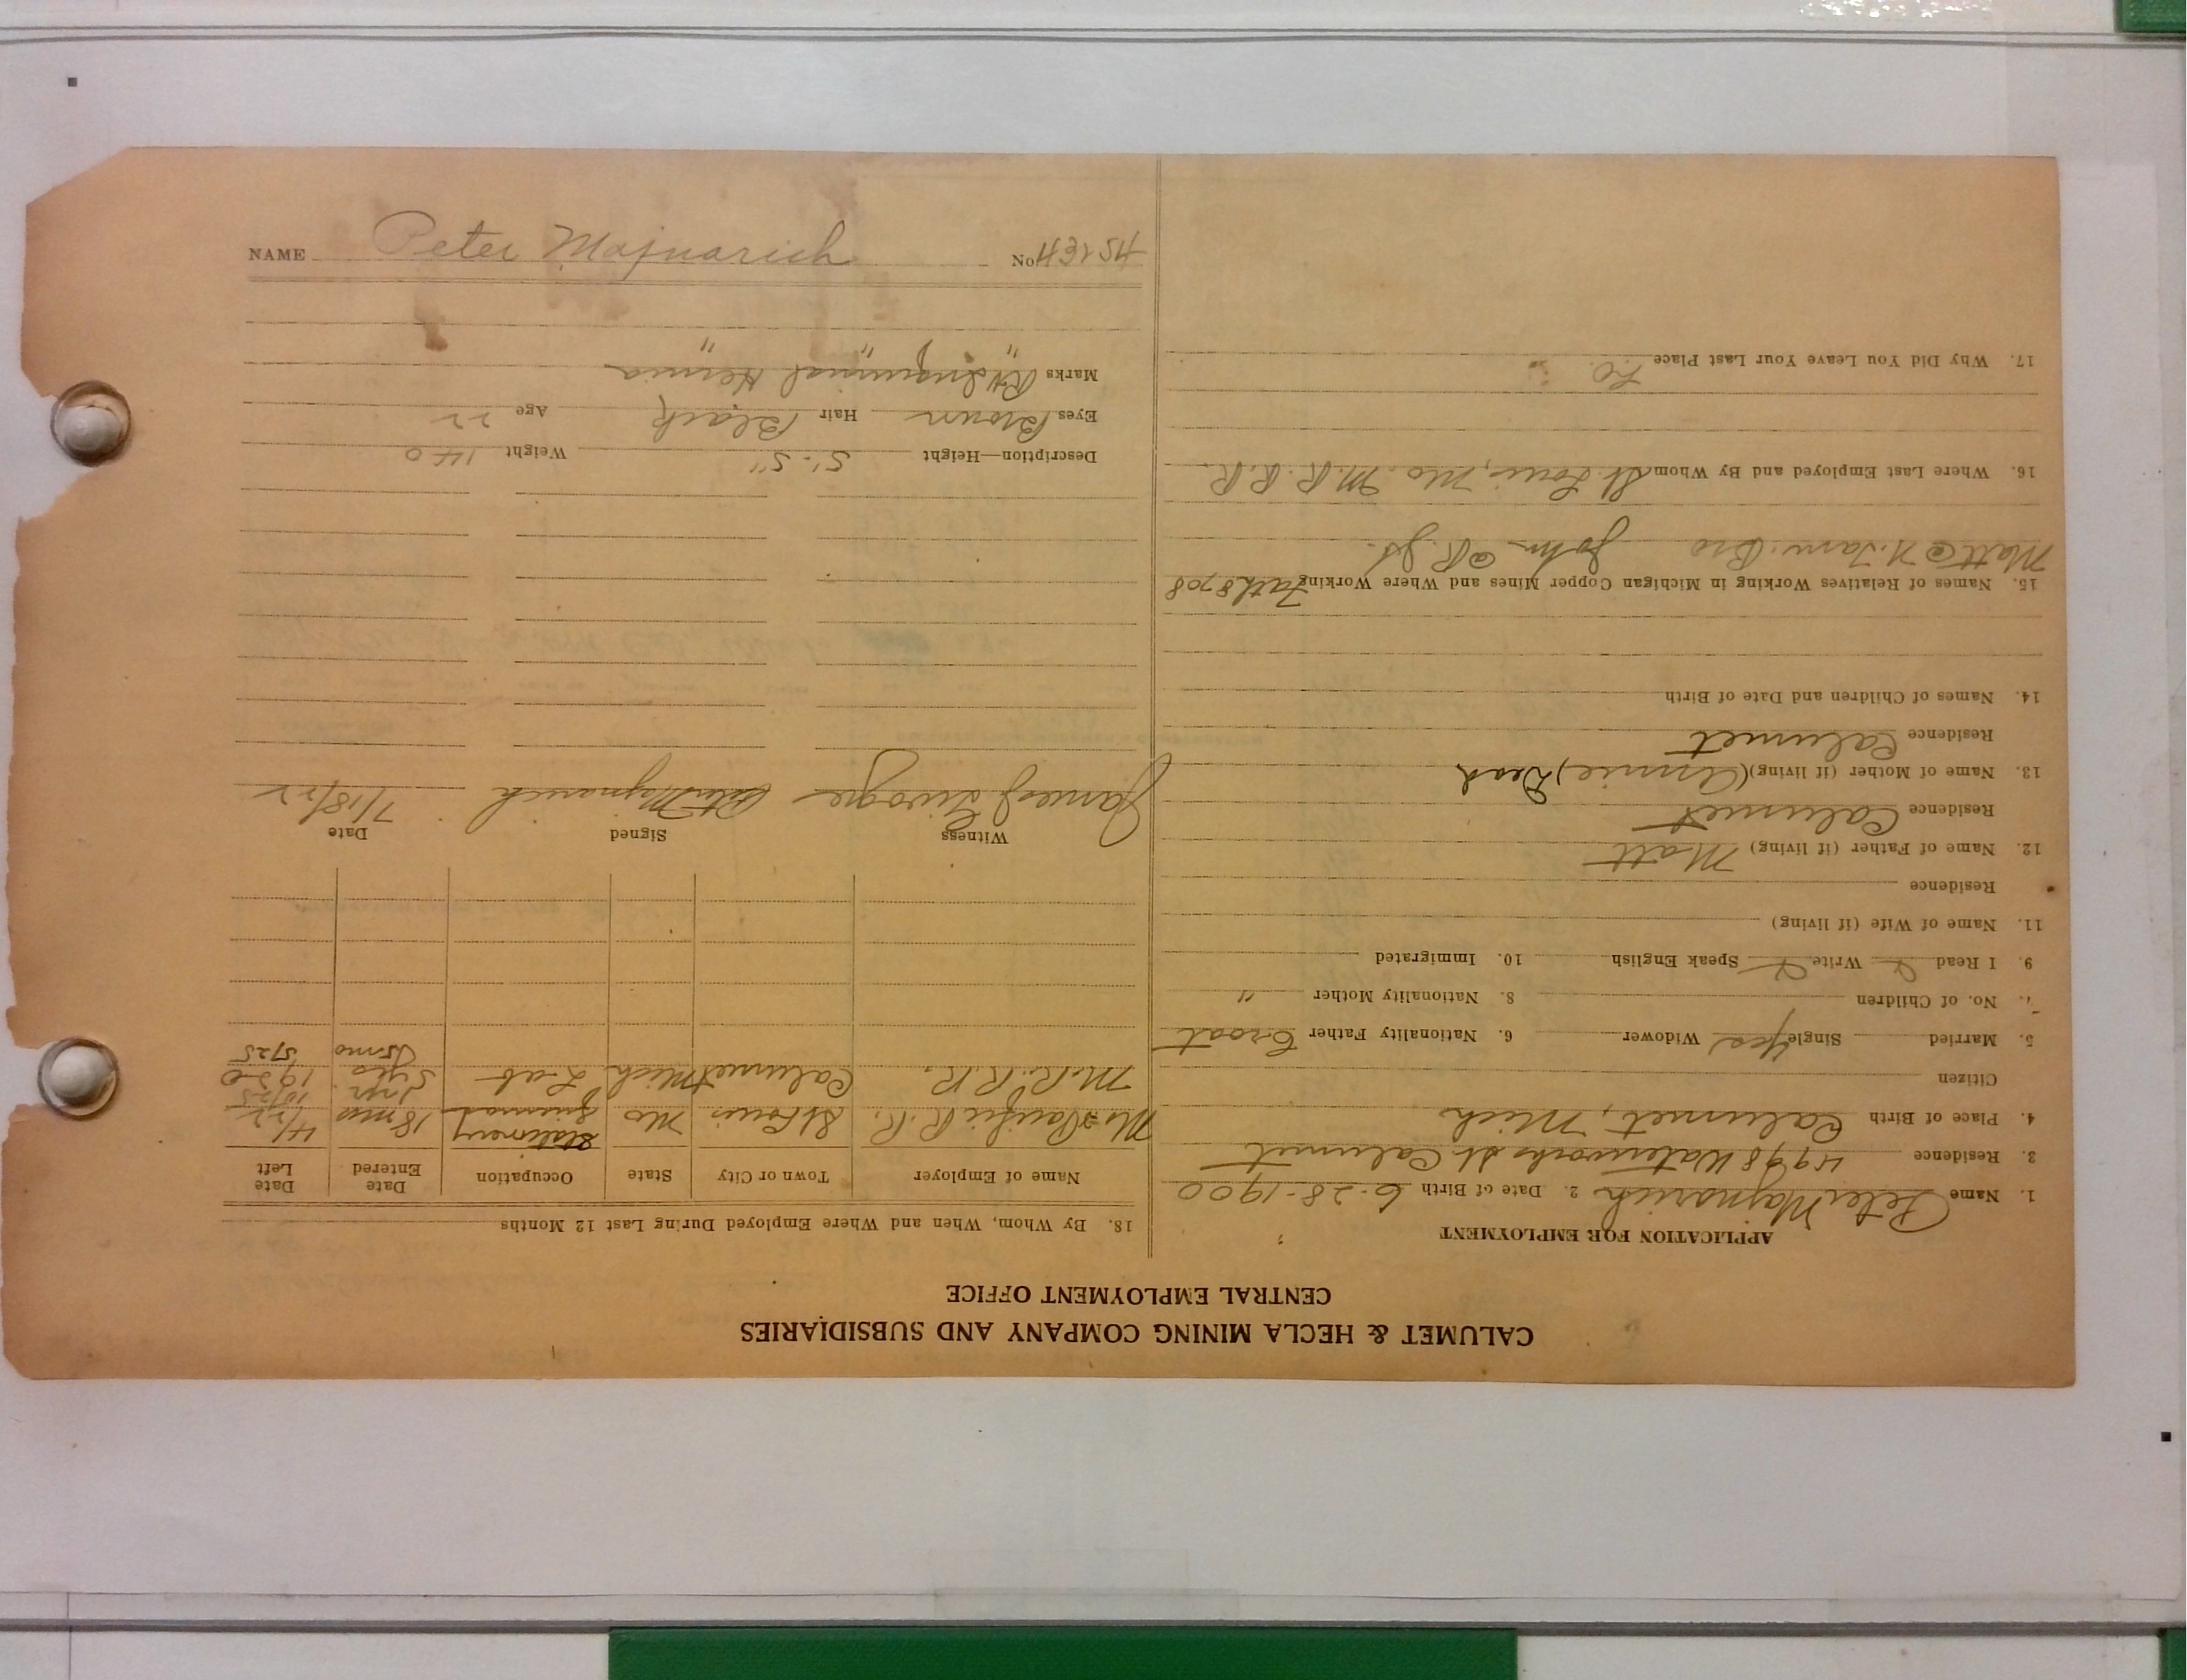 CALUMET & HECLA MINING COMPANY AND SUBSIDIARIES
CENTRAL EMPLOYMENT OFFICE
APPLICATION FOR EMPLOYMENT
1. Name Peter Majnarich 2. Date of Birth 6-28-1900
3. Residence 4998 Waterworks St Calumet
4. Place of Birth Calumet, Mich
Citizen
5. Married Single Yes Widower 6. Nationality Father Croat
7. No. of Children 8. Nationality Mother "
9. I Read Write Speak English 10. Immigrated
11. Name of Wife (if living)
Residence
12. Name of Father (if living) Matt
Residence Calumet
13. Name of Mother (if living) (Annie) Dead
Residence Calumet
14. Names of Children and Date of Birth
15. Names of Relatives Working in Michigan Copper Mines and Where Working Fath 8708
Matt @ N. Tam. Bro John @
16. Where Last Employed and By Whom St Louis, Mo. M.R.R.R.
17. Why Did You Leave Your Last Place L.O.
18. By Whom, When and Where Employed During Last 12 Months
Name of Employer Town or City State Occupation Date Entered Date Left
Mo Pacific R.R. St Louis Mo Stationery fireman 18 mos 4/22
10/25
M.R.R.R. Calumet Mich Lab 1920
15 mo 5/25
Witness Signed Date
James J Peter Majnarich 7/18/22
Description—Height 5'-5" Weight 140
Eyes Brown Hair Black Age 22
Marks Rt Inguinal Hernia
" " "
NAME Peter Majnarich No.